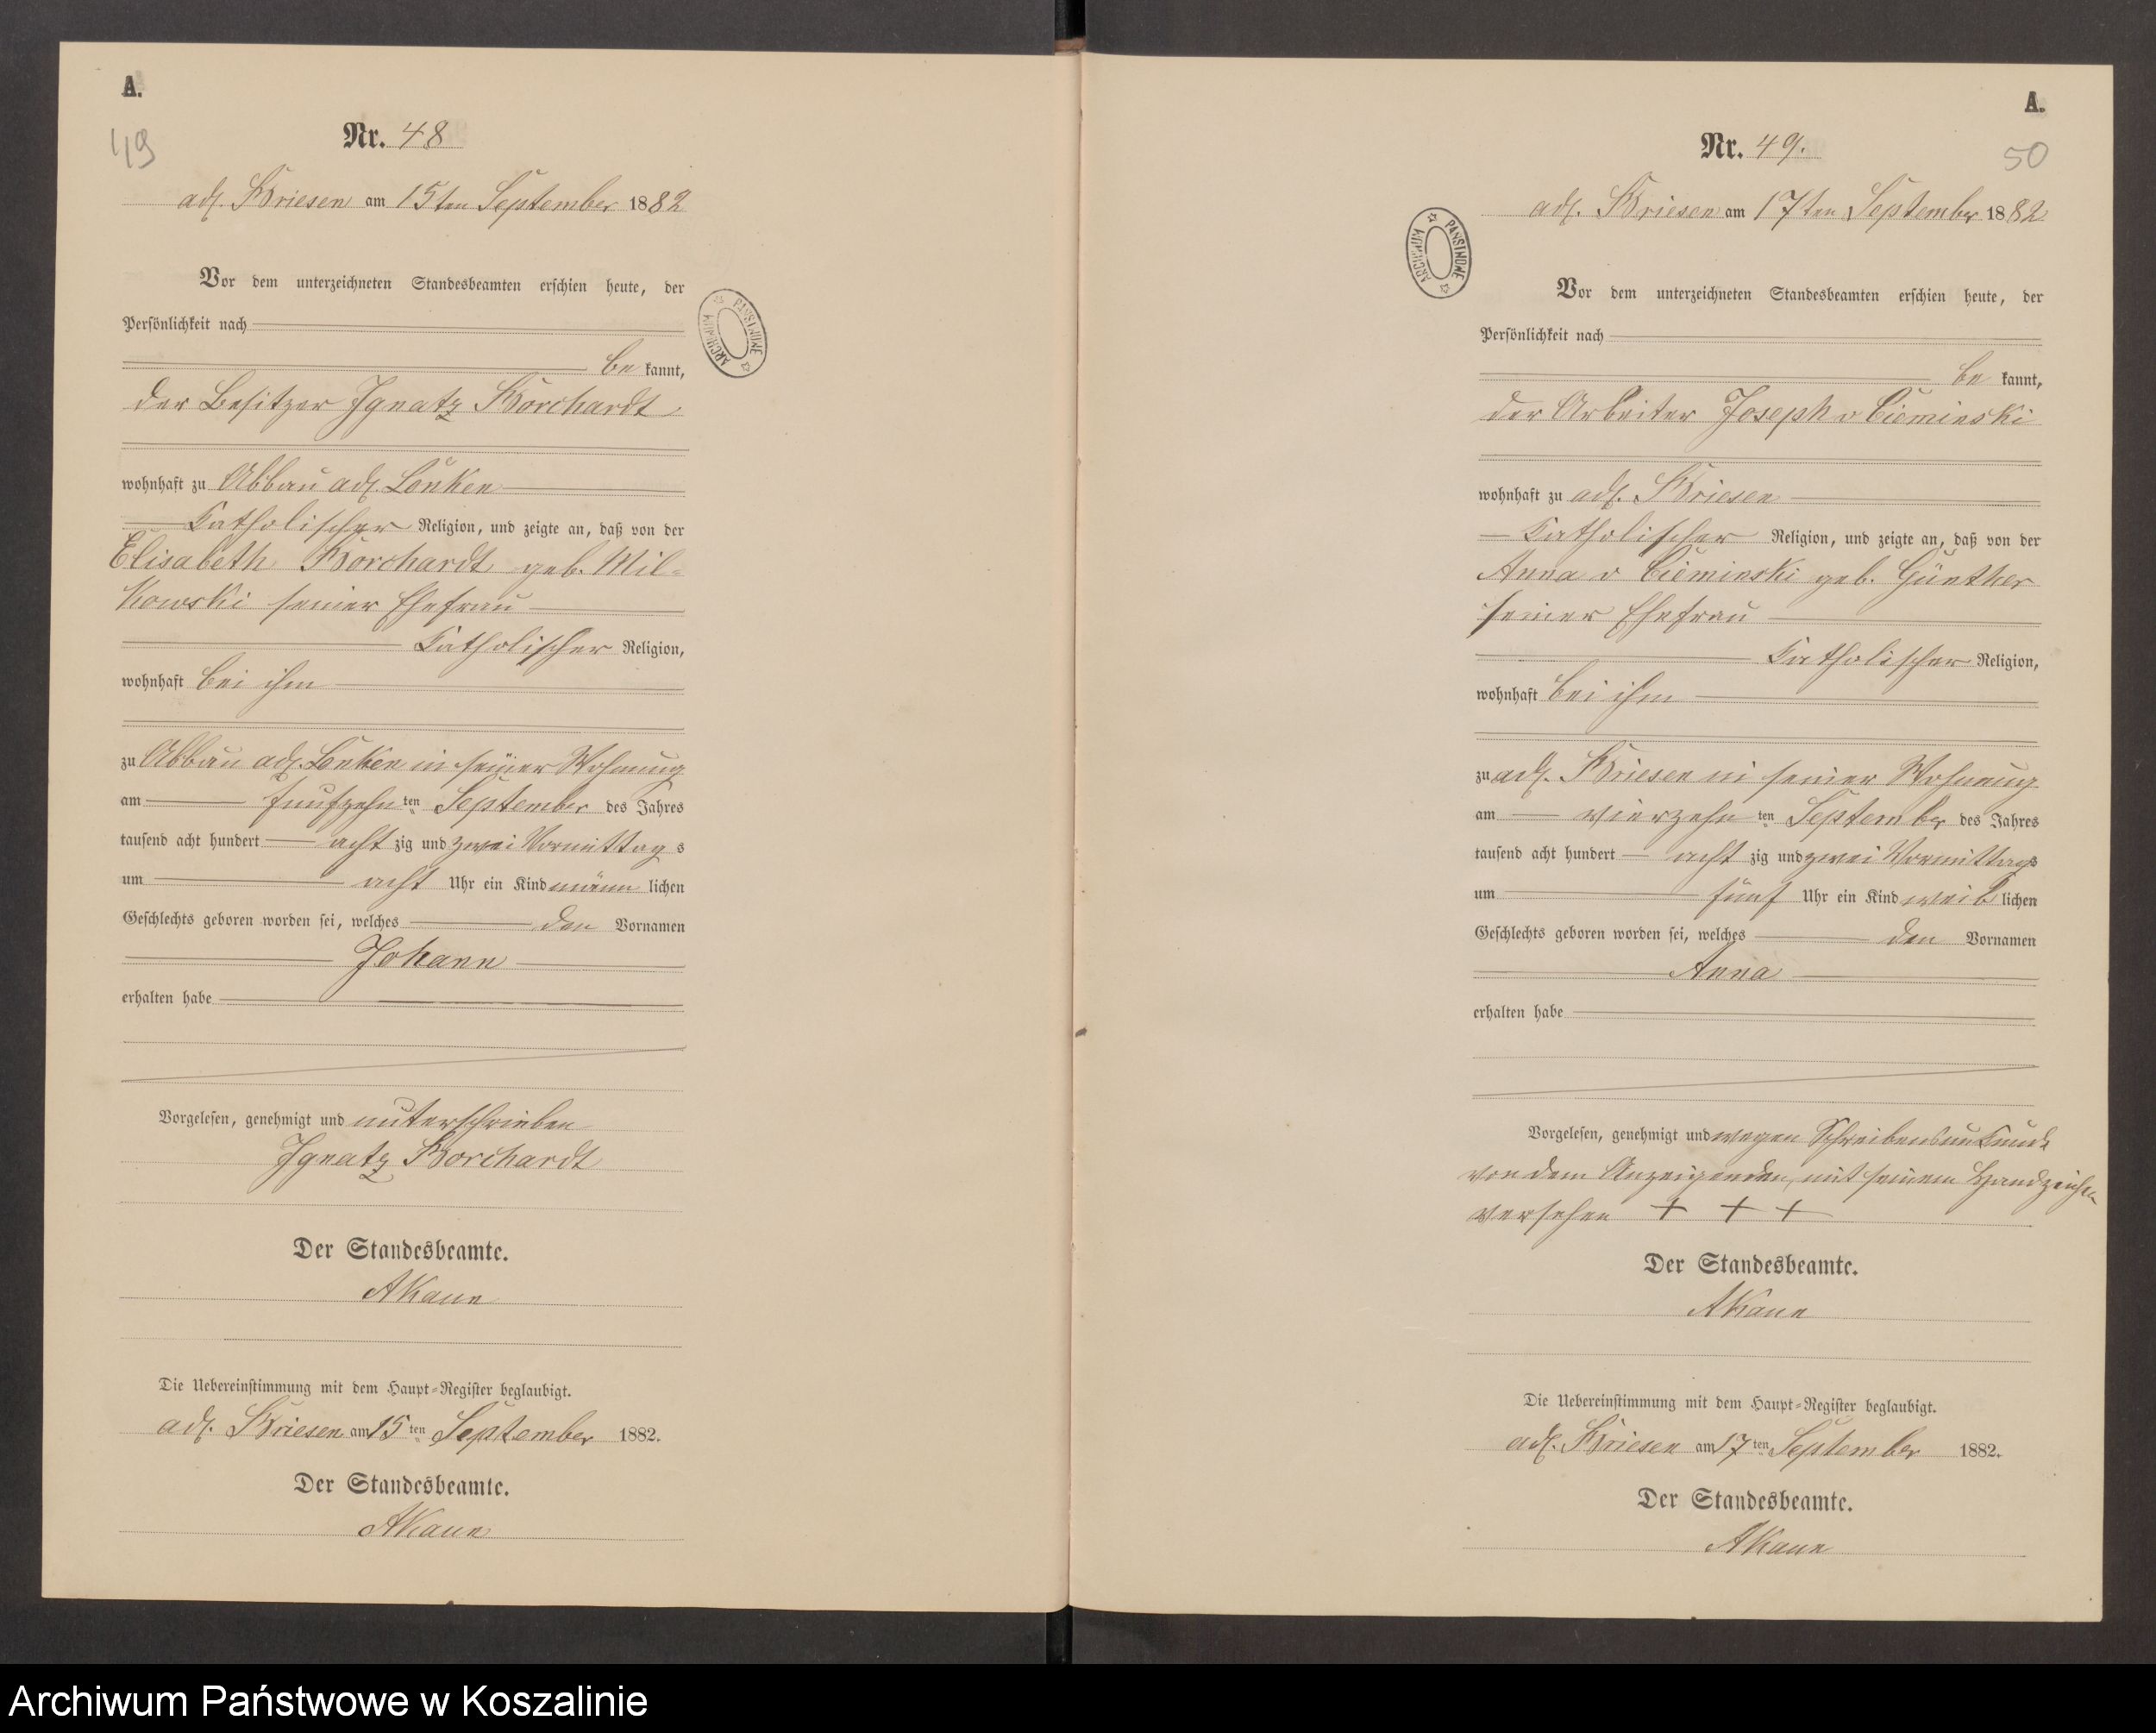 A.
49
Nr. 48
adl. Briesen am 15ten September 1882
Vor dem unterzeichneten Standesbeamten erschien heute, der
Persönlichkeit nach
be kannt,
der Besitzer Ignatz Borchardt
wohnhaft zu Abbau adl. Lonken
Katholischer Religion, und zeigte an, daß von der
Elisabeth Borchardt geb. Mil-
kowski seiner Ehefrau
Katholischer Religion,
wohnhaft bei ihm
zu Abbau adl. Lonken in seiner Wohnung
am fünfzehn ten September des Jahres
tausend acht hundert acht zig und zwei Vormittags
um acht Uhr ein Kind männ lichen
Geschlechts geboren worden sei, welches den Vornamen
Johann
erhalten habe
Vorgelesen, genehmigt und unterschrieben
Ignatz Borchardt
Der Standesbeamte.
A Kaun
Die Uebereinstimmung mit dem Haupt-Register beglaubigt.
adl. Briesen am 15 ten September 1882.
Der Standesbeamte.
A Kaun
ARCHIWUM PAŃSTWOWE
A.
50
Nr. 49.
adl. Briesen am 17ten September 1882
Vor dem unterzeichneten Standesbeamten erschien heute, der
Persönlichkeit nach
be kannt,
der Arbeiter Joseph v Cieminski
wohnhaft zu adl. Briesen
Katholischer Religion, und zeigte an, daß von der
Anna v Cieminski geb. Günther
seiner Ehefrau
Katholischer Religion,
wohnhaft bei ihm
zu adl. Briesen in seiner Wohnung
am vierzehn ten September des Jahres
tausend acht hundert acht zig und zwei Vormittags
um fünf Uhr ein Kind weib lichen
Geschlechts geboren worden sei, welches den Vornamen
Anna
erhalten habe
Vorgelesen, genehmigt und wegen Schreibensunkunde
von dem Anzeigenden, mit seinem Handzeichen
versehen + + +
Der Standesbeamte.
A Kaun
Die Uebereinstimmung mit dem Haupt-Register beglaubigt.
adl. Briesen am 17 ten September 1882.
Der Standesbeamte.
A Kaun
ARCHIWUM PAŃSTWOWE
Archiwum Państwowe w Koszalinie